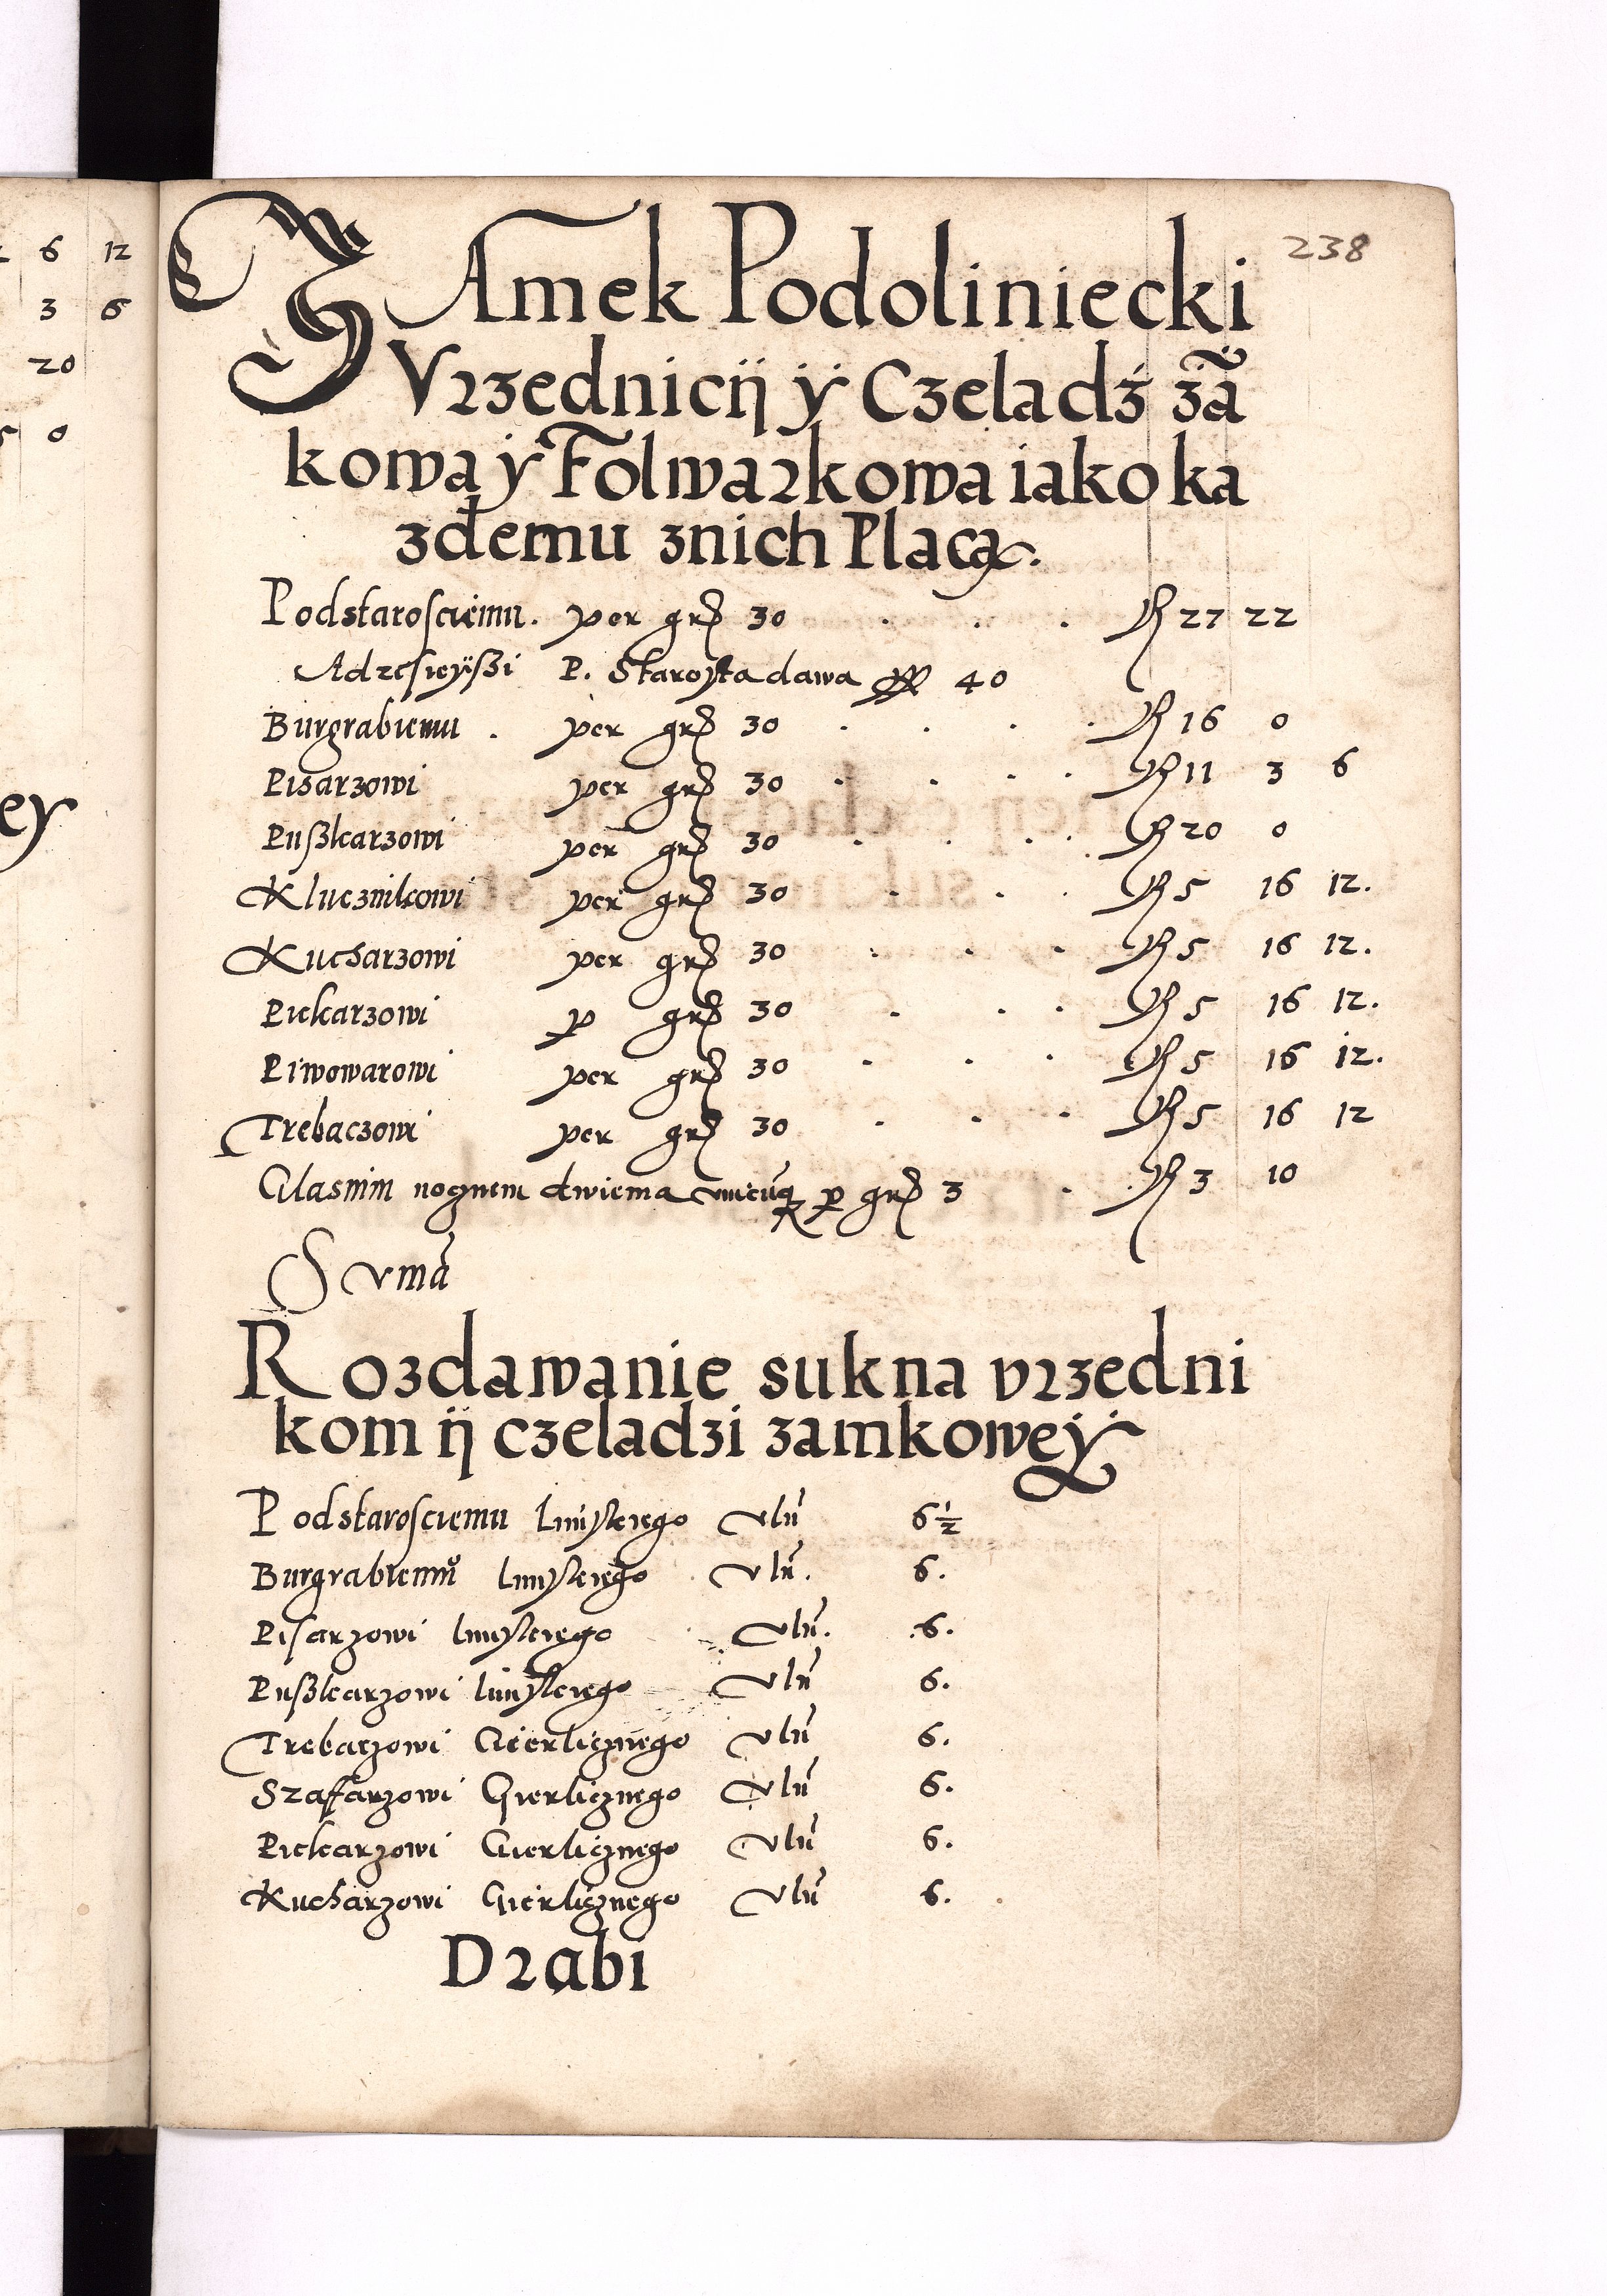 238
ZAmek Podoliniecki
Vrzednicÿ ÿ Czeladź zã
kowa ÿ Folwarkowa iako ka
zdemu znich Placą.
Podstarosciemu. per grosz 30 . . . R 27 22
P. Starosta dawa 40
Burgrabiemu . per grosz 30 . . . . R 16 0
Pisarzowi per grosz 30 . . . . R 11 3 6
Pußkarzowi per grosz 30 . . . . R 20 0
Klucznikowi per grosz 30 . . . R 5 16 12.
Kucharzowi per grosz 30 . . . R 5 16 12.
Piekarzowi p grosz 30 . . . R 5 16 12.
Piwowarowi per grosz 30 . . . R 5 16 12.
Trebaczowi per grosz 30 . . . R 5 16 12
nognem dwiema p grosz 3 . R 3 10
Sumã
Rozdawanie sukna vrzedni
kom ÿ czeladzi zamkoweÿ
Podstarosciemu lunskiego vlñ 6 1/2
Burgrabiemu lunskiego vlñ. 6.
Pisarzowi lunskiego vlñ. 6.
Pußkarzowi lunskiego vlñ 6.
Trebaczowi Gierlicznego vlñ 6.
Szafarzowi Gierlicznego vlñ 6.
Piekarzowi Gierlicznego vlñ 6.
Kucharzowi Gierlicznego vlñ 6.
Drabi
6 12
3 6
20
0
ey